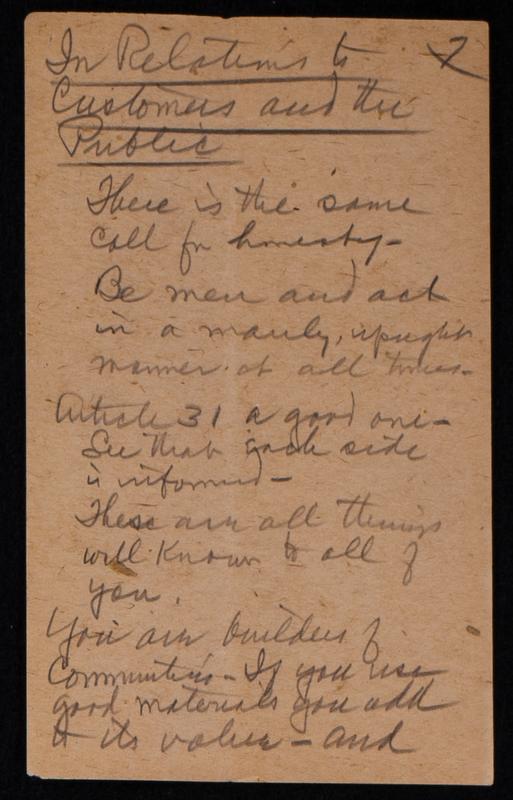 In Relations to 7
Customers and the
Public
There is the same
call for honesty -
Be men and act
in a manly, upright
manner at all times -
Article 31 a good one -
See that each side
is informed -
These are all things
well known to all of
you.
You are builders of
Communities - If you use
good materials you add
to its value - and